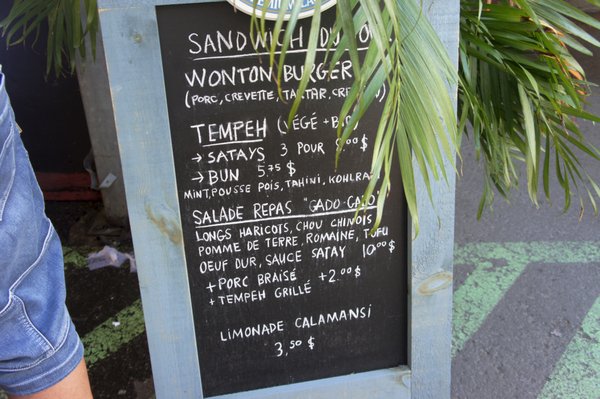 SANDWICH DU
WONTON BURGER
(PORC, CREVETTE, TARTAR,
TEMPEH (VÉGÉ + BIO
→ SATAYS 3 POUR 8.00 $
→ BUN 5.75 $
MINT, POUSSE POIS, TAHINI, KOHLRA
SALADE REPAS "GADO-GADO"
LONGS HARICOTS, CHOU CHINOIS
POMME DE TERRE, ROMAINE, TOFU
OEUF DUR, SAUCE SATAY 10.00 $
+ PORC BRAISÉ +2.00 $
+ TEMPEH GRILLÉ
LIMONADE CALAMANSI
3,50 $